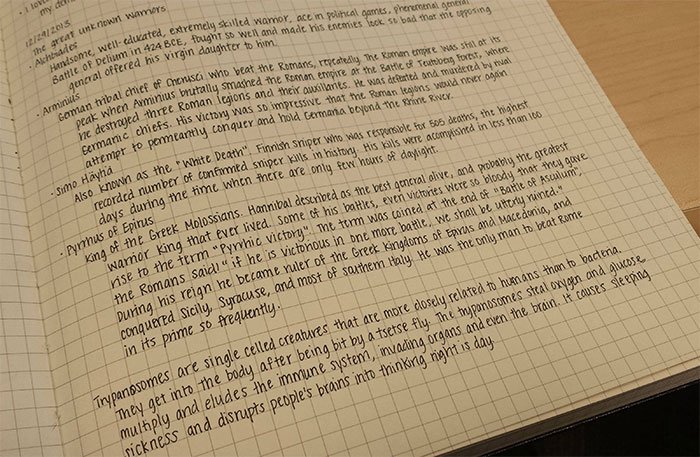 · I love
my dem
12/24/2013
The great unknown warriors
· Alcibiades
Handsome, well-educated, extremely skilled warrior, ace in political games, phenomenal general
Battle of Delium in 424 BCE, fought so well and made his enemies look so bad that the opposing
general offered his virgin daughter to him.
· Arminius
German tribal chief of Cherusci who beat the Romans, repeatedly. The Roman empire was still at its
peak when Arminius brutally smashed the Roman empire at the Battle of Teutoberg Forest, where
he destroyed three Roman legions and their auxiliaries. He was defeated and murdered by rival
Germanic chiefs. His victory was so impressive that the Roman legions would never again
attempt to permeantly conquer and hold Germania beyond the Rhine River.
· Simo Häyhä
Also known as the "White Death". Finnish sniper who was responsible for 505 deaths, the highest
recorded number of confirmed sniper kills in history. His kills were acomplished in less than 100
days during the time when there are only few hours of daylight.
· Pyrrhus of Epirus
King of the Greek Molossians. Hannibal described as the best general alive, and probably the greatest
warrior king that ever lived. Some of his battles, even victories were so bloody that they gave
rise to the term "Pyrrhic victory". The term was coined at the end of "Battle of Asculum",
the Romans said "if he is victorious in one more battle, we shall be utterly ruined."
During his reign he became ruler of the Greek Kingdoms of Epirus and Macedonia, and
conquered Sicily, Syracuse, and most of southern Italy. He was the only man to beat Rome
in its prime so frequently.
Trypanosomes are single celled creatures that are more closely related to humans than to bacteria.
They get into the body after being bit by a tsetse fly. The trypanosomes steal oxygen and glucose
multiply and eludes the immune system, invading organs and even the brain. It causes sleeping
sickness and disrupts people's brains into thinking night is day.